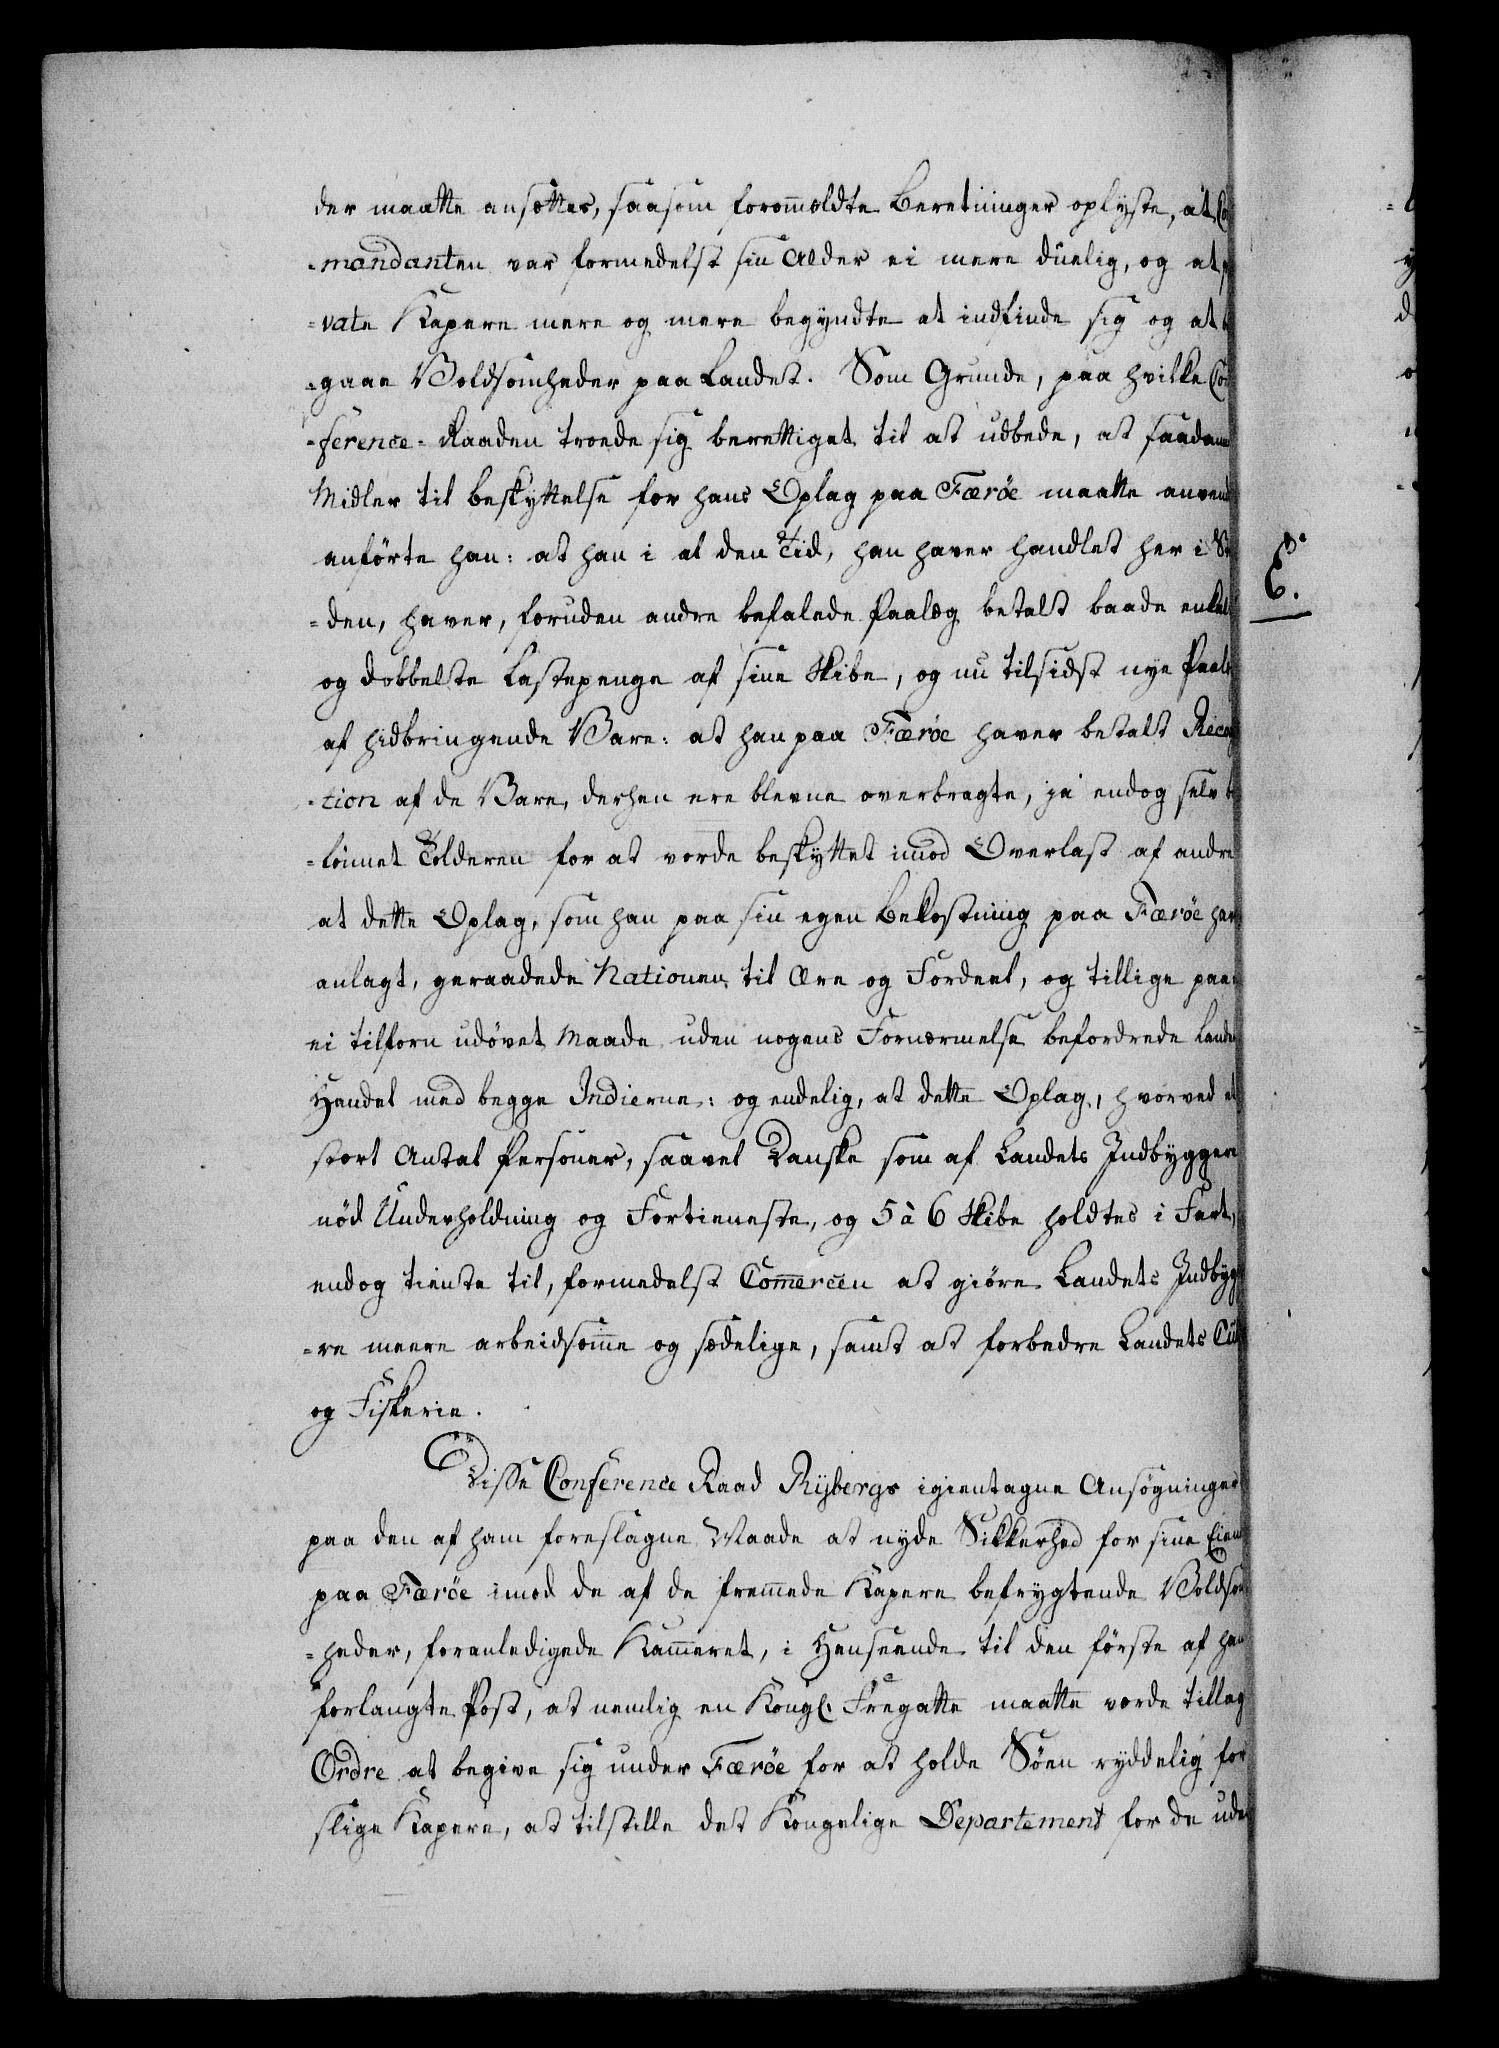 der maatte ansættes, saasom foromældte Beretninger oplyste, at Co
=mandanten var formedelst sin Alder ei mere duelig, og at
=vate Kapere mere og mere begyndte at indfinde sig og at
=gaae Voldsomheder paa Landet. Som Grunde, paa hvilke Con
=ference-Raaden troede sig berettiget til at udbede, at saadanne
Midler til beskyttelse for hans Oplag paa Færöe maatte anvend
anförte han: at han i al den Tid, han haver handlet her i St
=den, haver, foruden andre befalede Paalæg betalt baade enkel
og dobbelte Lastepenge af sine Skibe, og nu tilsidst nye Paal
af hidbringende Vare: at han paa Færöe haver betalt Recog
=tion af de Vare, derhen ere blevne overbragte, ja endog selv be
=lönnet Tolderen for at vorde beskyttet imod Overlast af andre
at dette Oplag, som han paa sin egen Bekostning paa Færöe hav
anlagt, geraadede Nationen til Ære og Fordeel, og tillige paa
ei tilforn udövet Maade uden nogens Fornærmelse befordrede Lande
Handel med begge Indierne: og endelig, at dette Oplag, hvorved et
stort Antal Personer, saavel Danske som af Landets Indbyggere
nöd Underholdning og Fortieneste, og 5 à 6 Skibe holdtes i Fart,
endog tiente til, formedelst Com̅ercen at giöre Landets Indbyg
=re meere arbeidsom̅e og sædelige, samt at forbedre Landets Cul
og Fiskerie.
Disse Conference Raad Rybergs igientagne Ansøgninger
paa den af ham foreslagne Maade at nyde Sikkerhed for sine Eien
paa Færöe imod de af de frem̅ede Kapere befrygtende Voldsom
=heder, foranledigede Kam̅eret, i Henseende til den förste af ham
forlangte Post, at nemlig en Kongl. Fregatte maatte vorde tillag
Ordre at begive sig under Færöe for at holde Söen ryddelig for
slige Kapere, at tilstille det Kongelige Departement for de uden
E.